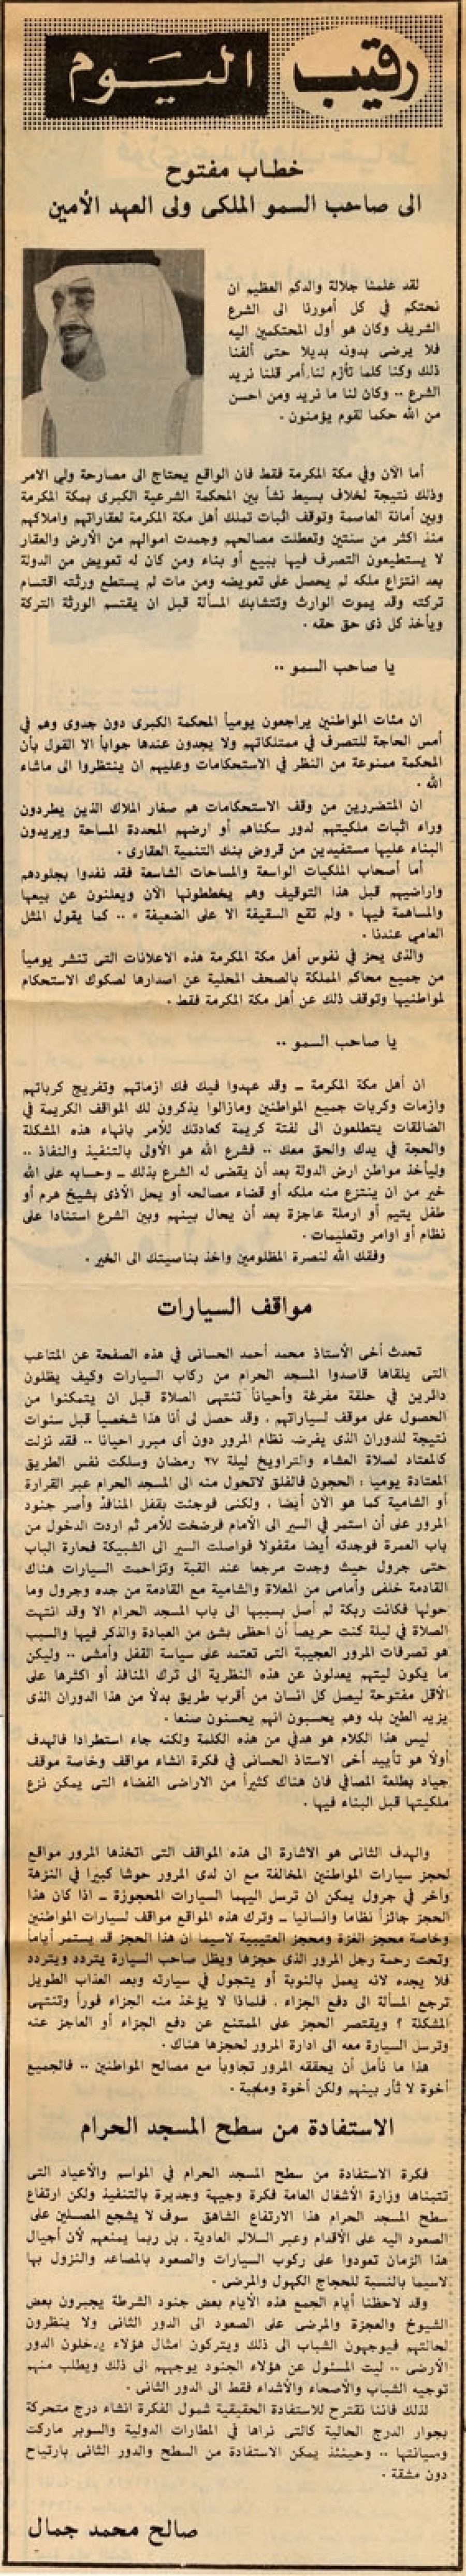 رقيب اليوم
خطاب مفتوح
الى صاحب السمو الملكى ولى العهد الأمين
لقد علمنا جلالة والدكم العظيم ان
نحتكم في كل أمورنا الى الشرع
الشريف وكان هو أول المحتكمين اليه
فلا يرضى بدونه بديلا حتى ألفنا
ذلك وكنا كلما تأزم لنا أمر قلنا نريد
الشرع .. وكان لنا ما نريد ومن احسن
من الله حكما لقوم يؤمنون .
أما الآن وفي مكة المكرمة فقط فان الواقع يحتاج الى مصارحة ولي الامر
وذلك نتيجة لخلاف بسيط نشأ بين المحكمة الشرعية الكبرى بمكة المكرمة
وبين أمانة العاصمة وتوقف اثبات تملك أهل مكة المكرمة لعقاراتهم واملاكهم
منذ اكثر من سنتين وتعطلت مصالحهم وجمدت اموالهم من الأرض والعقار
لا يستطيعون التصرف فيها ببيع أو بناء ومن كان له تعويض من الدولة
بعد انتزاع ملكه لم يحصل على تعويضه ومن مات لم يستطع ورثته اقتسام
تركته وقد يموت الوارث وتتشابك المسألة قبل ان يقتسم الورثة التركة
ويأخذ كل ذى حق حقه .
يا صاحب السمو ..
ان مئات المواطنين يراجعون يومياً المحكمة الكبرى دون جدوى وهم في
أمس الحاجة للتصرف في ممتلكاتهم ولا يجدون عندها جواباً الا القول بأن
المحكمة ممنوعة من النظر في الاستحكامات وعليهم ان ينتظروا الى ماشاء
الله .
ان المتضررين من وقف الاستحكامات هم صغار الملاك الذين يطردون
وراء اثبات ملكيتهم لدور سكناهم أو ارضهم المحددة المساحة ويريدون
البناء عليها مستفيدين من قروض بنك التنمية العقارى .
أما أصحاب الملكيات الواسعة والمساحات الشاسعة فقد نفدوا بجلودهم
واراضيهم قبل هذا التوقيف وهم يخططونها الآن ويعلنون عن بيعها
والمساهمة فيها « ولم تقع السقيفة الا على الضعيفة » .. كما يقول المثل
العامي عندنا .
والذى يحز في نفوس أهل مكة المكرمة هذه الاعلانات التى تنشر يومياً
من جميع محاكم المملكة بالصحف المحلية عن اصدارها لصكوك الاستحكام
لمواطنيها وتوقف ذلك عن أهل مكة المكرمة فقط .
يا صاحب السمو ..
ان أهل مكة المكرمة ــ وقد عهدوا فيك فك ازماتهم وتفريج كرباتهم
وازمات وكربات جميع المواطنين ومازالوا يذكرون لك المواقف الكريمة في
الضائقات يتطلعون الى لفتة كريمة كعادتك للأمر بانهاء هذه المشكلة
والحجة في يدك والحق معك .. فشرع الله هو الأولى بالتنفيذ والنفاذ ..
وليأخذ مواطن ارض الدولة بعد أن يقضى له الشرع بذلك ــ وحسابه على الله
خير من ان ينتزع منه ملكه أو قضاء مصالحه أو يحل الأذى بشيخ هرم أو
طفل يتيم أو ارملة عاجزة بعد أن يحال بينهم وبين الشرع استنادا على
نظام أو اوامر وتعليمات .
وفقك الله لنصرة المظلومين واخذ بناصيتك الى الخير .
مواقف السيارات
تحدث أخى الأستاذ محمد أحمد الحسانى في هذه الصفحة عن المتاعب
التى يلقاها قاصدوا المسجد الحرام من ركاب السيارات وكيف يظلون
دائرين في حلقة مفرغة وأحياناً تنتهى الصلاة قبل ان يتمكنوا من
الحصول على موقف لسياراتهم . وقد حصل لى أنا هذا شخصياً قبل سنوات
نتيجة للدوران الذى يفرضه نظام المرور دون أى مبرر احيانا .. فقد نزلت
كالمعتاد لصلاة العشاء والتراويح ليلة ٢٧ رمضان وسلكت نفس الطريق
المعتادة يوميا : الحجون فالفلق لاتحول منه الى المسجد الحرام عبر القرارة
أو الشامية كما هو الآن أيضا . ولكنى فوجئت بقفل المنافذ وأصر جنود
المرور على أن استمر في السير الى الأمام فرضخت للأمر ثم اردت الدخول من
باب العمرة فوجدته أيضا مقفولا فواصلت السير الى الشبيكة فحارة الباب
حتى جرول حيث وجدت مرجعا عند القبة وتزاحمت السيارات هناك
القادمة خلفى وأمامى من المعلاة والشامية مع القادمة من جده وجرول وما
حولها فكانت ربكة لم أصل بسببها الى باب المسجد الحرام الا وقد انتهت
الصلاة في ليلة كنت حريصاً أن احظى بشئ من العبادة والذكر فيها والسبب
هو تصرفات المرور العجيبة التى تعتمد على سياسة القفل وأمشى .. وليكن
ما يكون ليتهم يعدلون عن هذه النظرية الى ترك المنافذ أو اكثرها على
الأقل مفتوحة ليصل كل انسان من أقرب طريق بدلاً من هذا الدوران الذى
يزيد الطين بله وهم يحسبون انهم يحسنون صنعا .
ليس هذا الكلام هو هدفي من هذه الكلمة ولكنه جاء استطرادا فالهدف
أولاً هو تأييد أخى الاستاذ الحسانى في فكرة انشاء مواقف وخاصة موقف
جياد بطلعة المصافي فان هناك كثيراً من الاراضى الفضاء التى يمكن نزع
ملكيتها قبل البناء فيها .
والهدف الثانى هو الاشارة الى هذه المواقف التى اتخذها المرور مواقع
لحجز سيارات المواطنين المخالفة مع ان لدى المرور حوشا كبيرا في النزهة
وآخر في جرول يمكن ان ترسل اليهما السيارات المحجوزة ــ اذا كان هذا
الحجز جائزاً نظاما وانسانيا ــ وترك هذه المواقع مواقف لسيارات المواطنين
وخاصة محجز الغزة ومحجز العتيبية لاسيما ان هذا الحجز قد يستمر أياماً
وتحت رحمة رجل المرور الذى حجزها ويظل صاحب السيارة يتردد ويتردد
فلا يجده لانه يعمل بالنوبة أو يتجول في سيارته وبعد العذاب الطويل
ترجع المسألة الى دفع الجزاء . فلماذا لا يؤخذ منه الجزاء فوراً وتنتهى
المشكلة ؟ ويقتصر الحجز على الممتنع عن دفع الجزاء أو العاجز عنه
وترسل السيارة معه الى ادارة المرور لحجزها هناك .
هذا ما نأمل أن يحققه المرور تجاوباً مع مصالح المواطنين .. فالجميع
أخوة لا ثأر بينهم ولكن أخوة ومحبة .
الاستفادة من سطح المسجد الحرام
فكرة الاستفادة من سطح المسجد الحرام في المواسم والأعياد التى
تتبناها وزارة الأشغال العامة فكرة وجيهة وجديرة بالتنفيذ ولكن ارتفاع
سطح المسجد الحرام هذا الارتفاع الشاهق سوف لا يشجع المصلين على
الصعود اليه على الأقدام وعبر السلالم العادية . بل ربما يمنعهم لأن أجيال
هذا الزمان تعودوا على ركوب السيارات والصعود بالمصاعد والنزول بها
لاسيما بالنسبة للحجاج الكهول والمرضى .
وقد لاحظنا أيام الجمع هذه الأيام بعض جنود الشرطة يجبرون بعض
الشيوخ والعجزة والمرضى على الصعود الى الدور الثانى ولا ينظرون
لحالتهم فيوجهون الشباب الى ذلك ويتركون امثال هؤلاء يدخلون الدور
الأرضى .. ليت المسئول عن هؤلاء الجنود يوجههم الى ذلك ويطلب منهم
توجيه الشباب والأصحاء والأشداء فقط الى الدور الثانى .
لذلك فاننا نقترح للاستفادة الحقيقية شمول الفكرة انشاء درج متحركة
بجوار الدرج الحالية كالتى نراها في المطارات الدولية والسوبر ماركت
وسيانتها .. وحينئذ يمكن الاستفادة من السطح والدور الثانى بارتياح
دون مشقة .
صالح محمد جمال